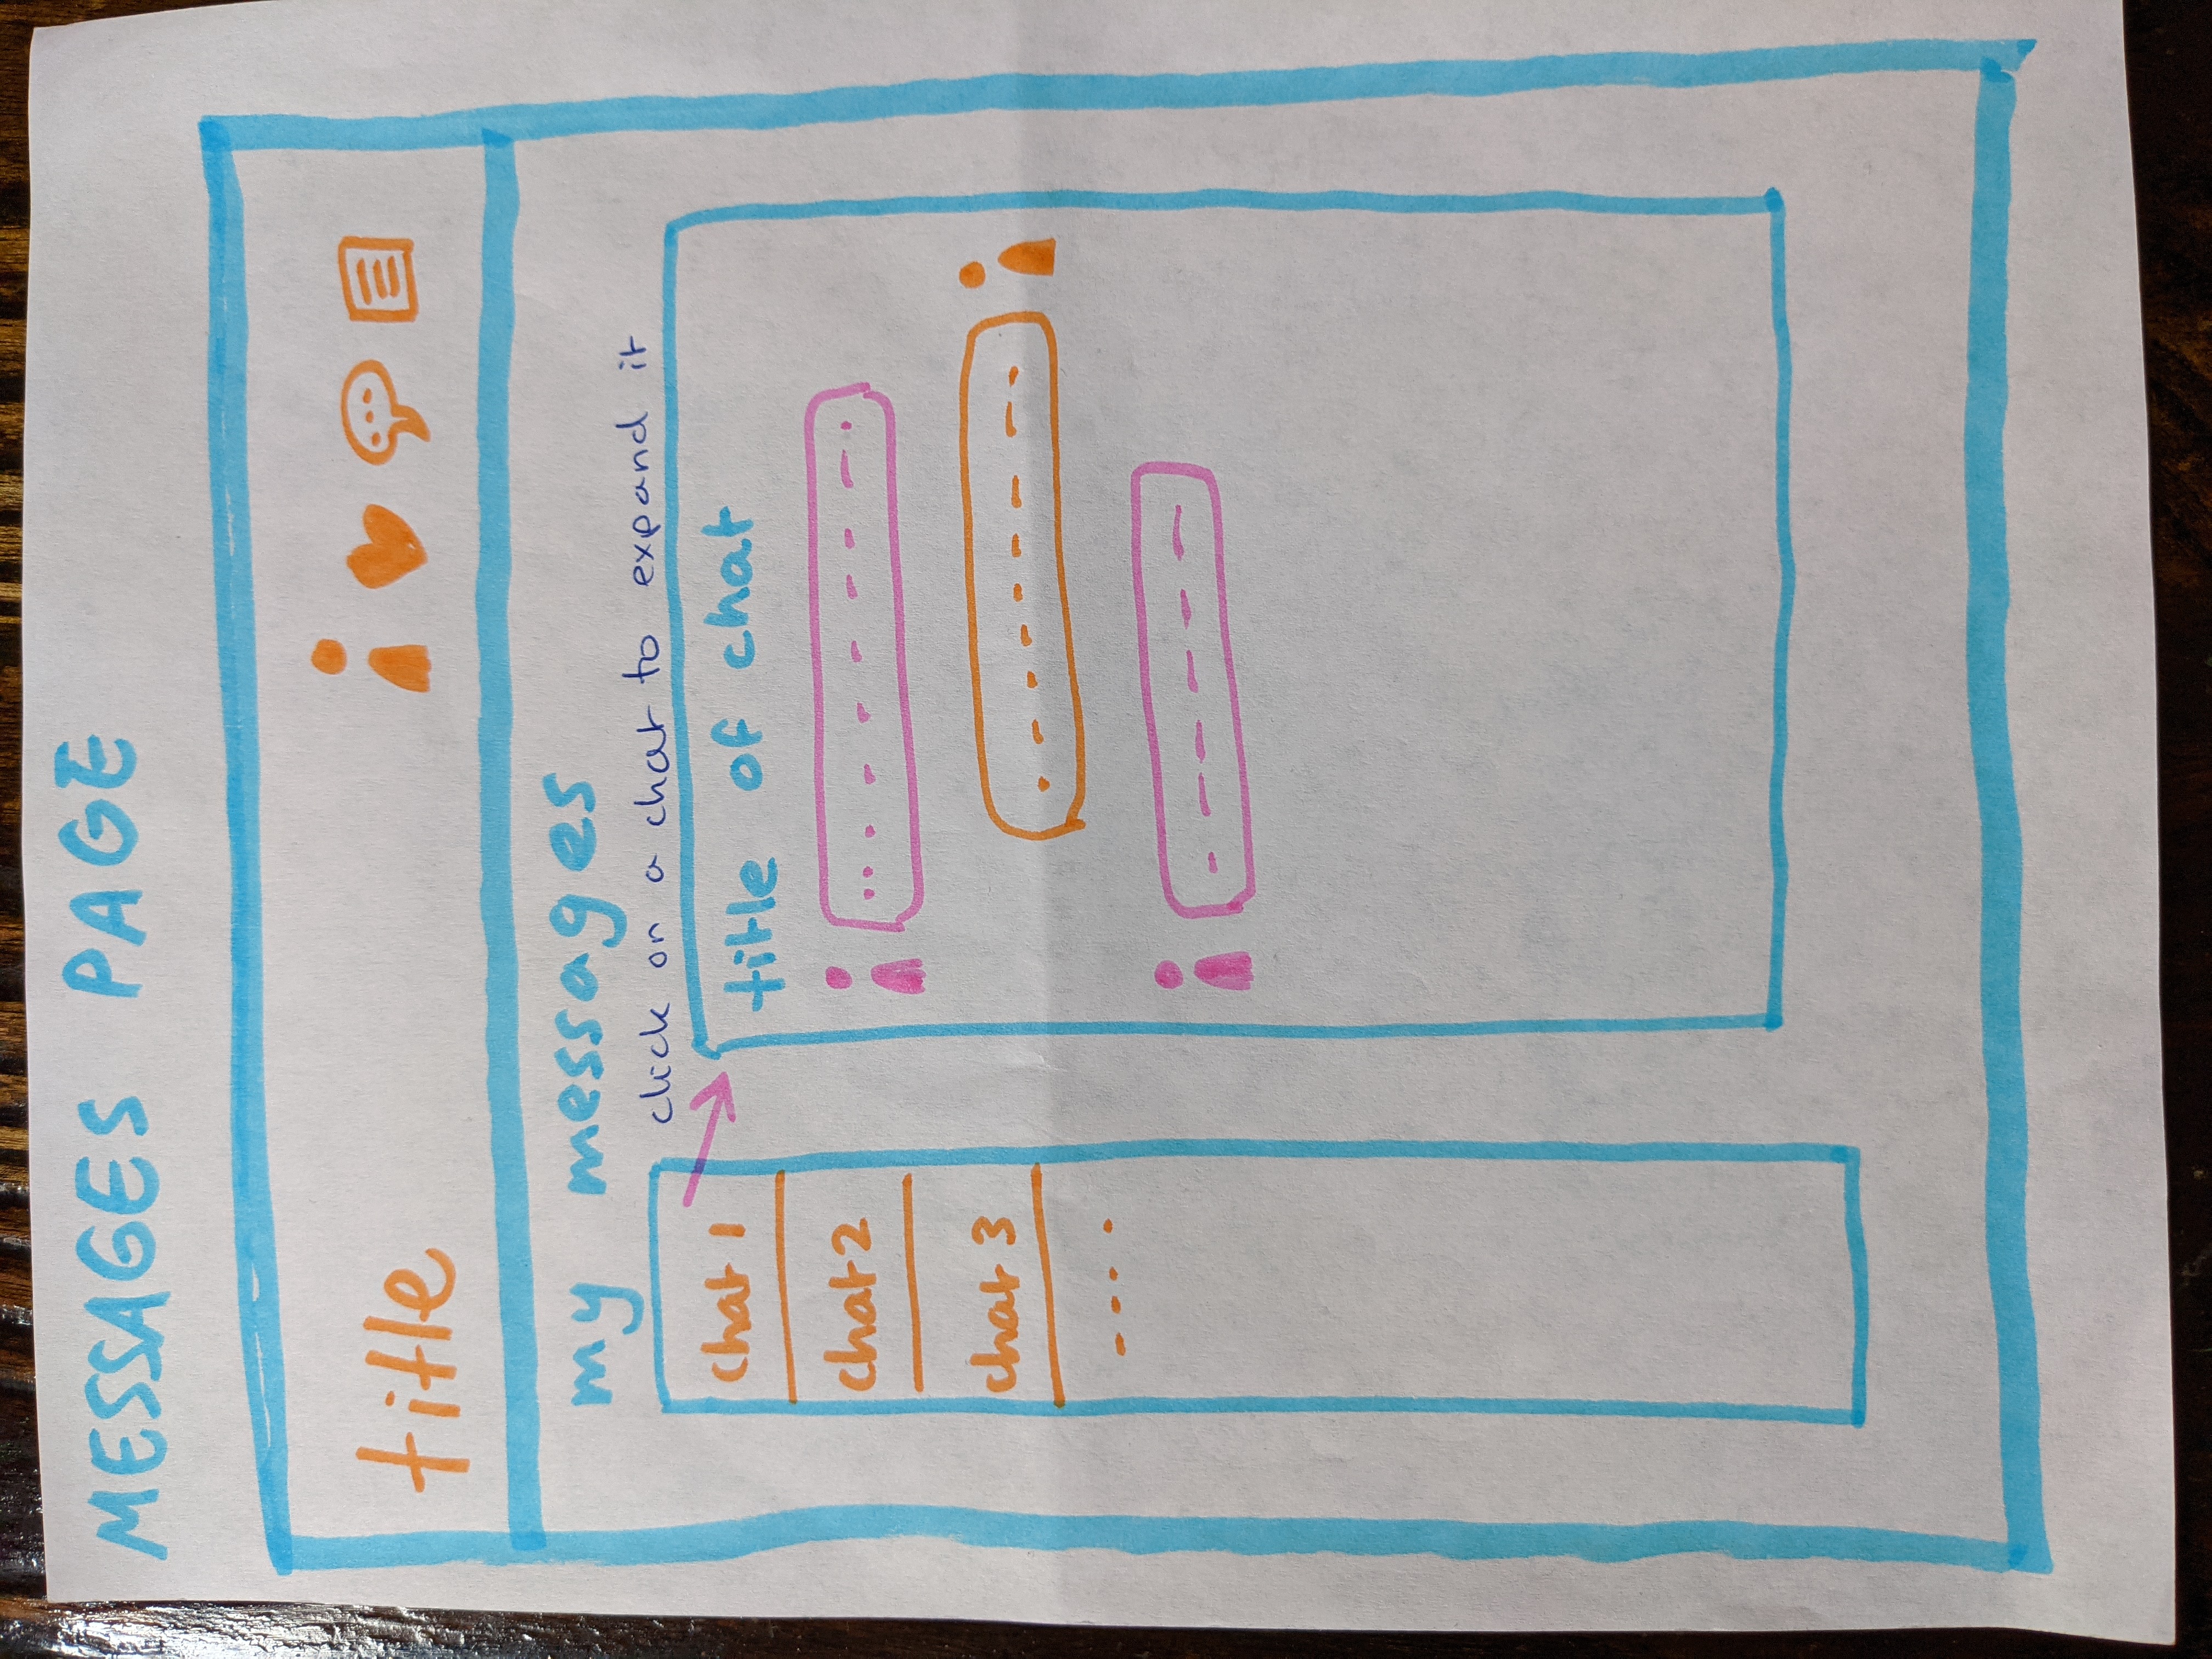 MESSAGES PAGE
title
my messages
click on a chat to expand it
chat 1
chat 2
chat 3
title of chat